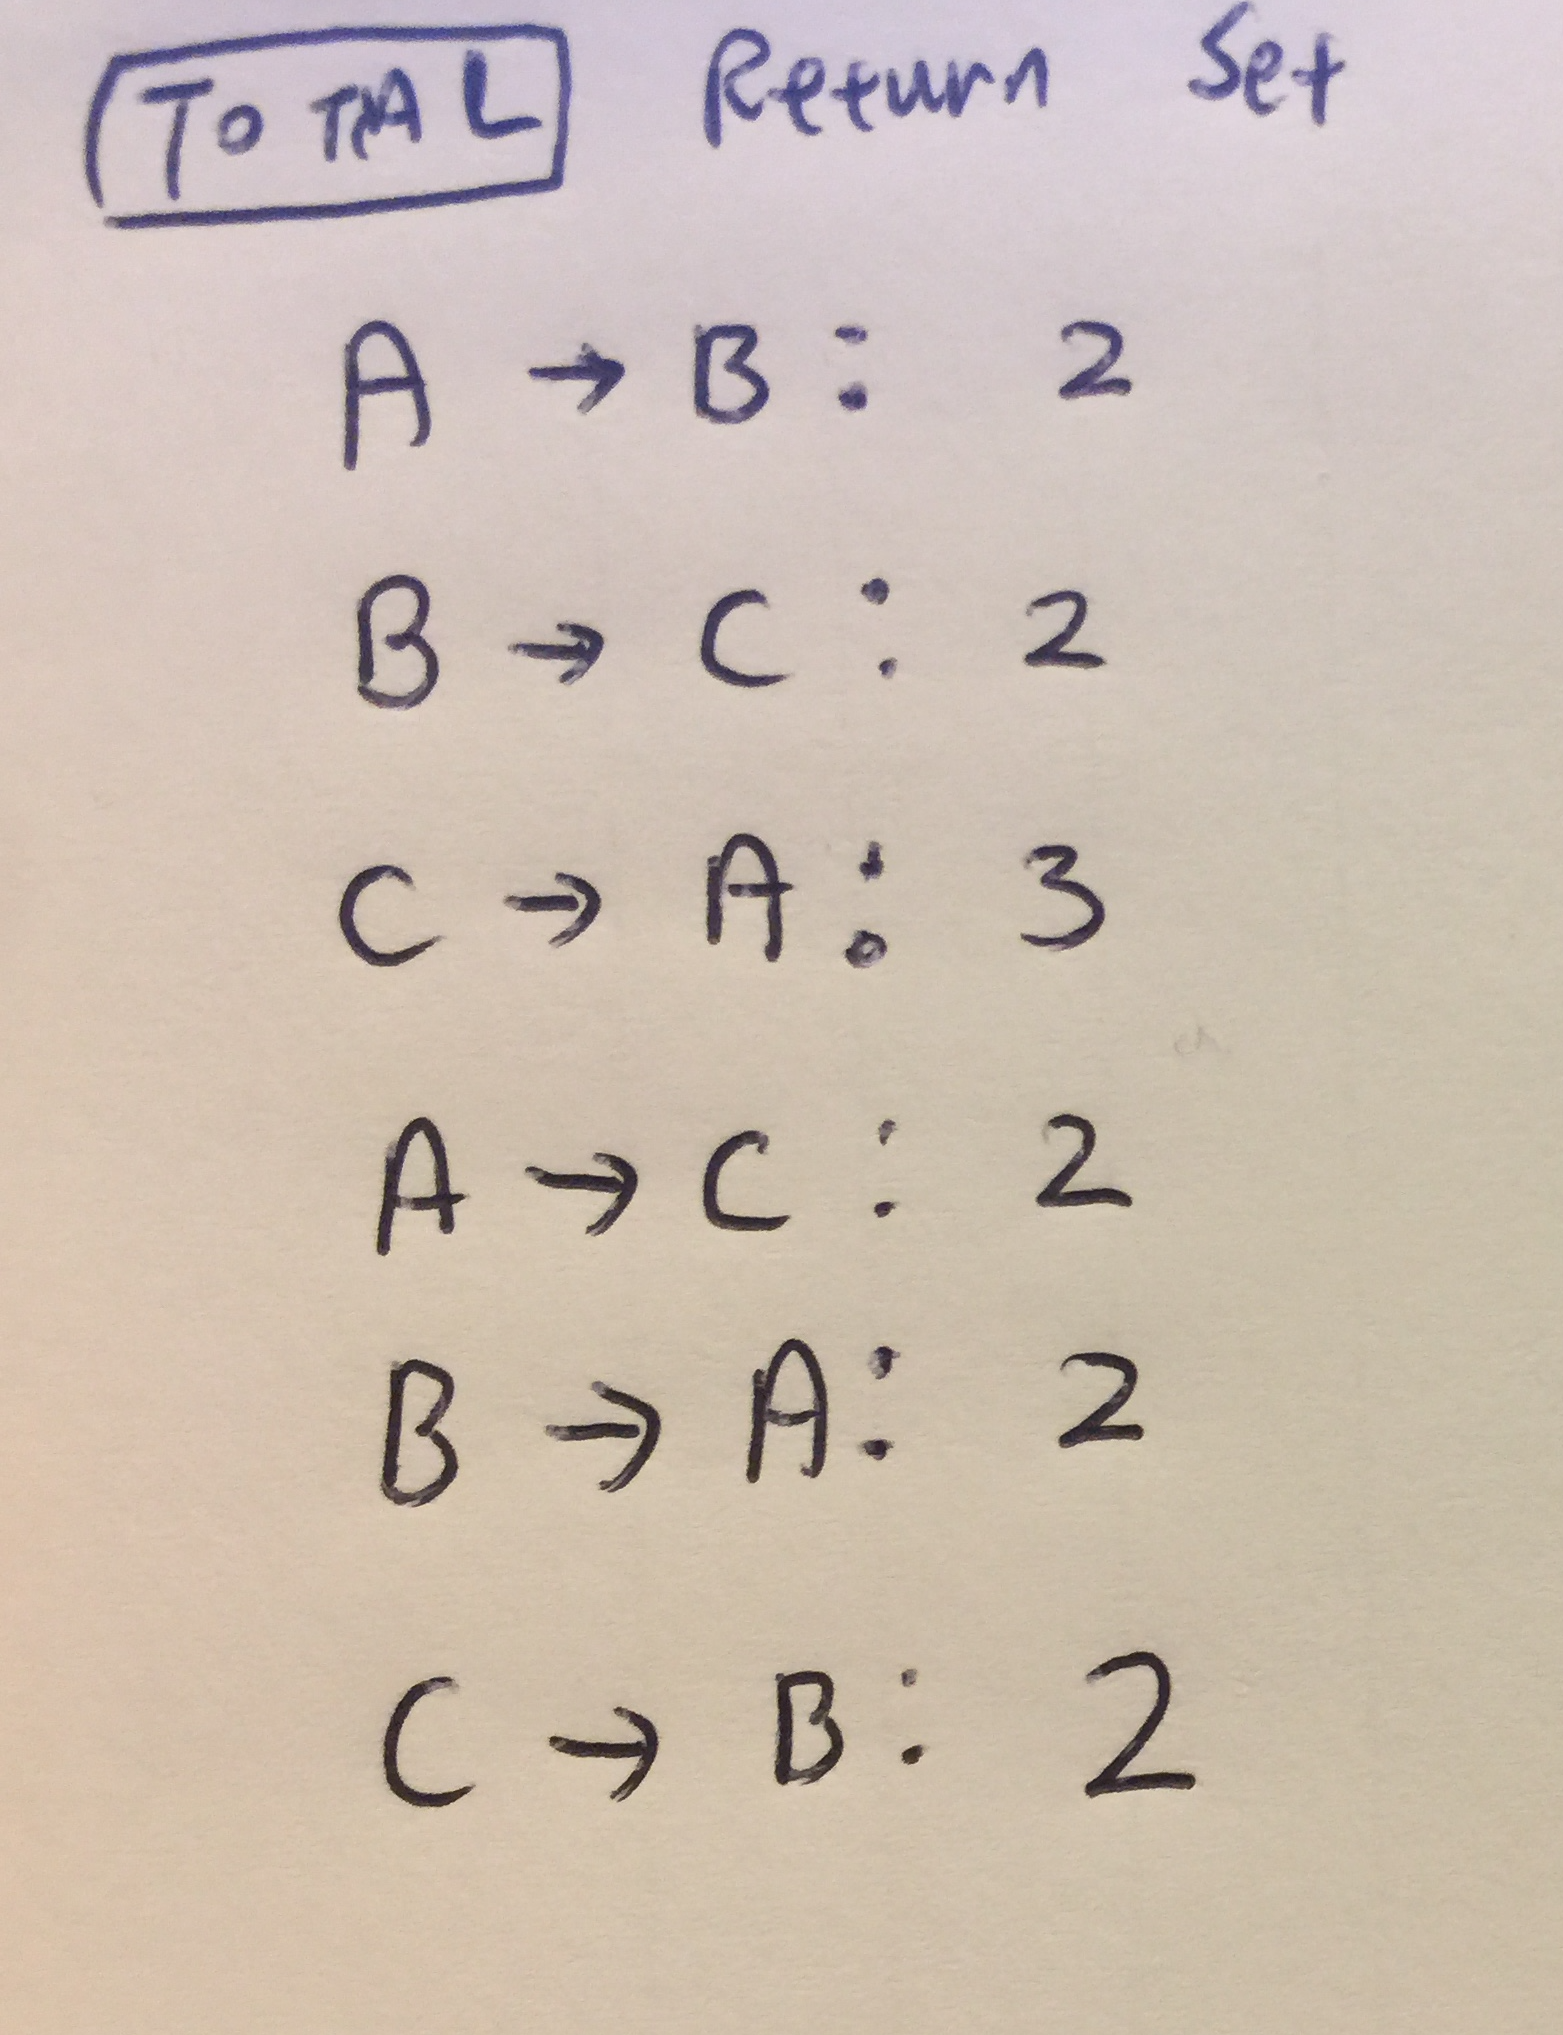 TOTAL Return Set
A → B : 2
B → C : 2
C → A : 3
A → C : 2
B → A : 2
C → B : 2